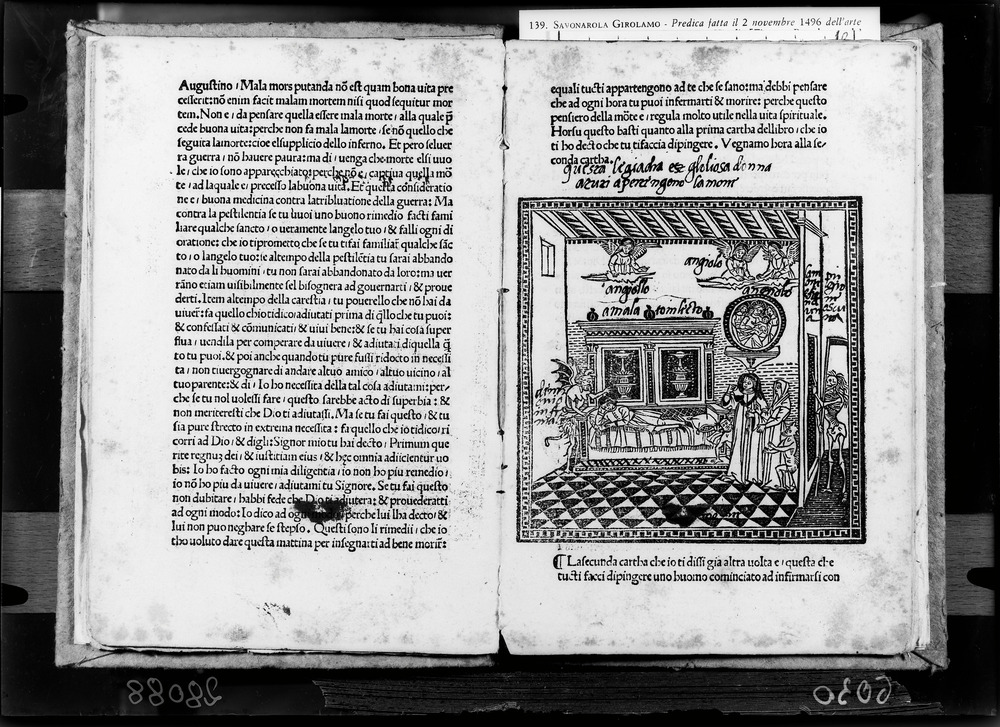 139. SAVONAROLA GIROLAMO - Predica fatta il 2 novembre 1496 dell'arte
Augustino / Mala mors putanda nō est quam bona uita pre
cesserit: nō enim facit malam mortem nisi quod sequitur mor
tem. Non e / da pensare quella essere mala morte / alla quale p̄
cede buona uita: perche non fa mala lamorte / se nō quello che
seguita lamorte: cioe elsupplicio dello inferno. Et pero seluer
ra guerra / nō hauere paura: ma di / uenga che morte elsi uuo
le / che io sono apparecchiato: perche nō e / captiua quella mō
te / ad laquale e / precesso labuona uita. Et questa consideratio
ne e / buona medicina contra latribulatione della guerra: Ma
contra la pestilentia se tu huoi uno buono rimedio facti fami
liare qualche sancto / o ueramente langelo tuo / & falli ogni di
oratione: che io tiprometto che se tu tifai familiar̄ qualche sāc
to / o langelo tuo: ie altempo della pestilētia tu sarai abbando
nato da li huomini / tu non sarai abbandonato da loro: ma uer
rāno etiam uisibilmente sel bisognera ad gouernarti / & proue
derti. Item altempo della carestia / tu pouerello che nō hai da
uiuer̄: fa quello chio tidico: adiutati prima di q̄llo che tu puoi:
& confessati & cōmunicati / & uiui bene: & se tu hai cosa super
flua / uendila per comperare da uiuere / & adiutati diquella q̄
to tu puoi. & poi anche quando tu pure fussi ridocto in necessi
ta / non tiuergognare di andare altuo amico / altuo uicino / al
tuo parente: & di / Io ho necessita della tal cosa adiutami: per-
che se tu nol uolessi fare / questo sarebbe acto di superbia : &
non meriteresti che Dio ti adiutassi. Ma se tu fai questo / & tu
sia pure strecto in extrema necessita : fa quello che io tidico: ri
corri ad Dio / & digli: Signor mio tu hai decto / Primum que
rite regnuz dei / & iustitiam eius / & hęc omnia adiicientur uo
bis: Io ho facto ogni mia diligentia / io non ho piu remedio /
io nō ho piu da uiuere / adiutami tu Signore. Se tu fai questo
non dubitare / habbi fede che Dio ti adiutera: & prouederatti
ad ogni modo: Io dico ad ogni perche lui lha decto / &
lui non puo neghare se stesso. Questi sono li rimedii / che io
tho uoluto dare questa mattina per insegnarti ad bene morir̄:
equali tucti appartengono ad te che se sano: ma debbi pensare
che ad ogni hora tu puoi infermarti & morire: perche questo
pensiero della mōte e / regula molto utile nella uita spirituale.
Horsu questo basti quanto alla prima cartha dellibro / che io
ti ho decto che tu tifaccia dipingere . Vegnamo hora alla se-
conda cartha.
questa legiadra ese gloliosa donna
acuzi apertengono la mont
angiolo
angiollo
angiolo
amala tomlecto
¶ La secunda cartha che io ti dissi gia altra uolta e / questa che
tucti facci dipingere uno huomo cominciato ad infirmarsi con
28088
6030